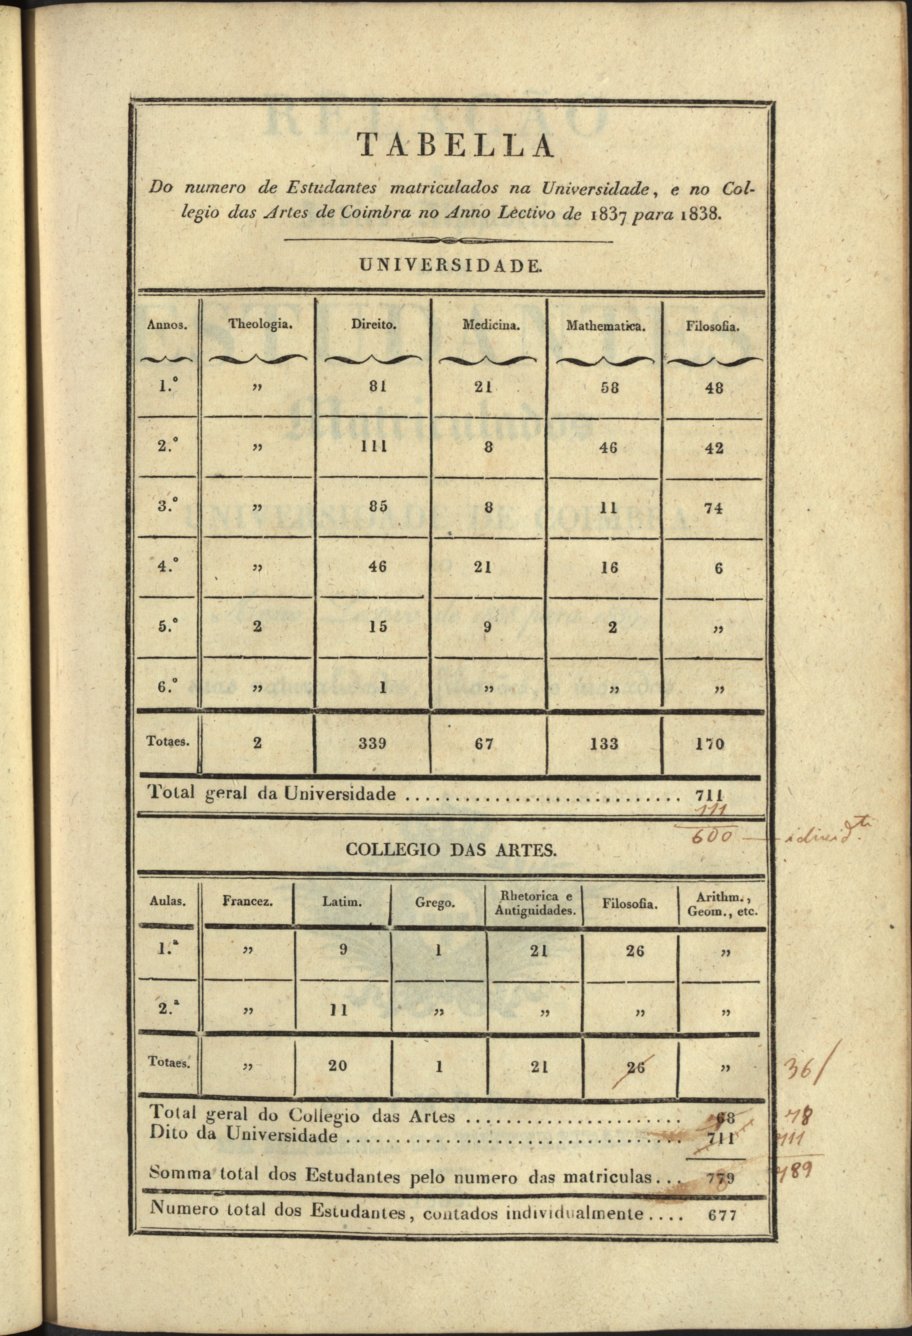 TABELLA
Do numero de Estudantes matriculados na Universidade, e no Col-
legio das Artes de Coimbra no Anno Lectivo de 1837 para 1838.
UNIVERSIDADE.
Annos. Theologia. Direito. Medicina. Mathematica. Filosofia.
1.º ,, 81 21 58 48
2.º ,, 111 8 46 42
3.º ,, 85 8 11 74
4.º ,, 46 21 16 6
5.º 2 15 9 2 ,,
6.º ,, 1 ,, ,, ,,
Totaes. 2 339 67 133 170
Total geral da Universidade ............................ 711
111
600
COLLEGIO DAS ARTES.
Aulas. Francez. Latim. Grego. Rhetorica e Antiguidades. Filosofia. Arithm., Geom., etc.
1.ª ,, 9 1 21 26 ,,
2.ª ,, 11 ,, ,, ,, ,,
Totaes. ,, 20 1 21 26 ,, 36/
Total geral do Collegio das Artes ...................... 68 78
Dito da Universidade .................................. 711 711
Somma total dos Estudantes pelo numero das matriculas... 779 789
Numero total dos Estudantes, contados individualmente .... 677